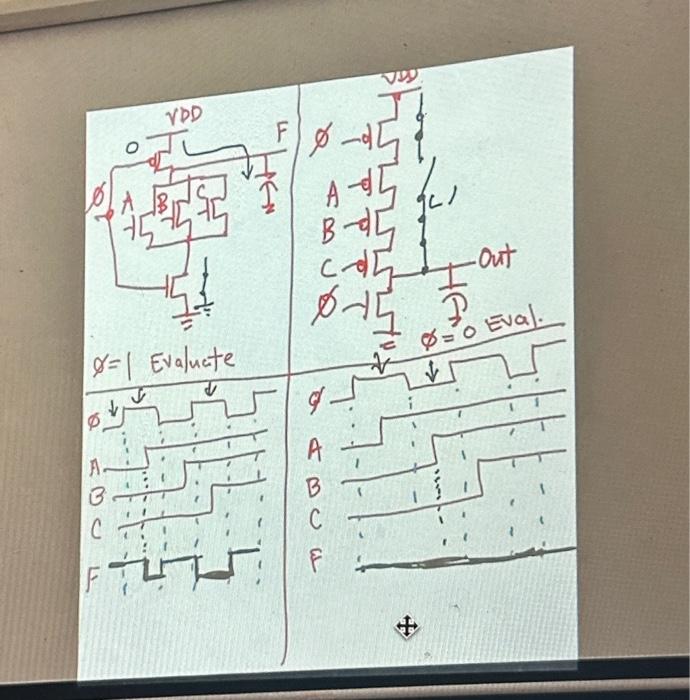 VDD
O
F
Ø
A
B
C
Ø=1 Evaluate
Ø
A
B
C
F
VDD
Ø
A
B
C
Out
Ø
Ø=0 Eval.
Ø
A
B
C
F